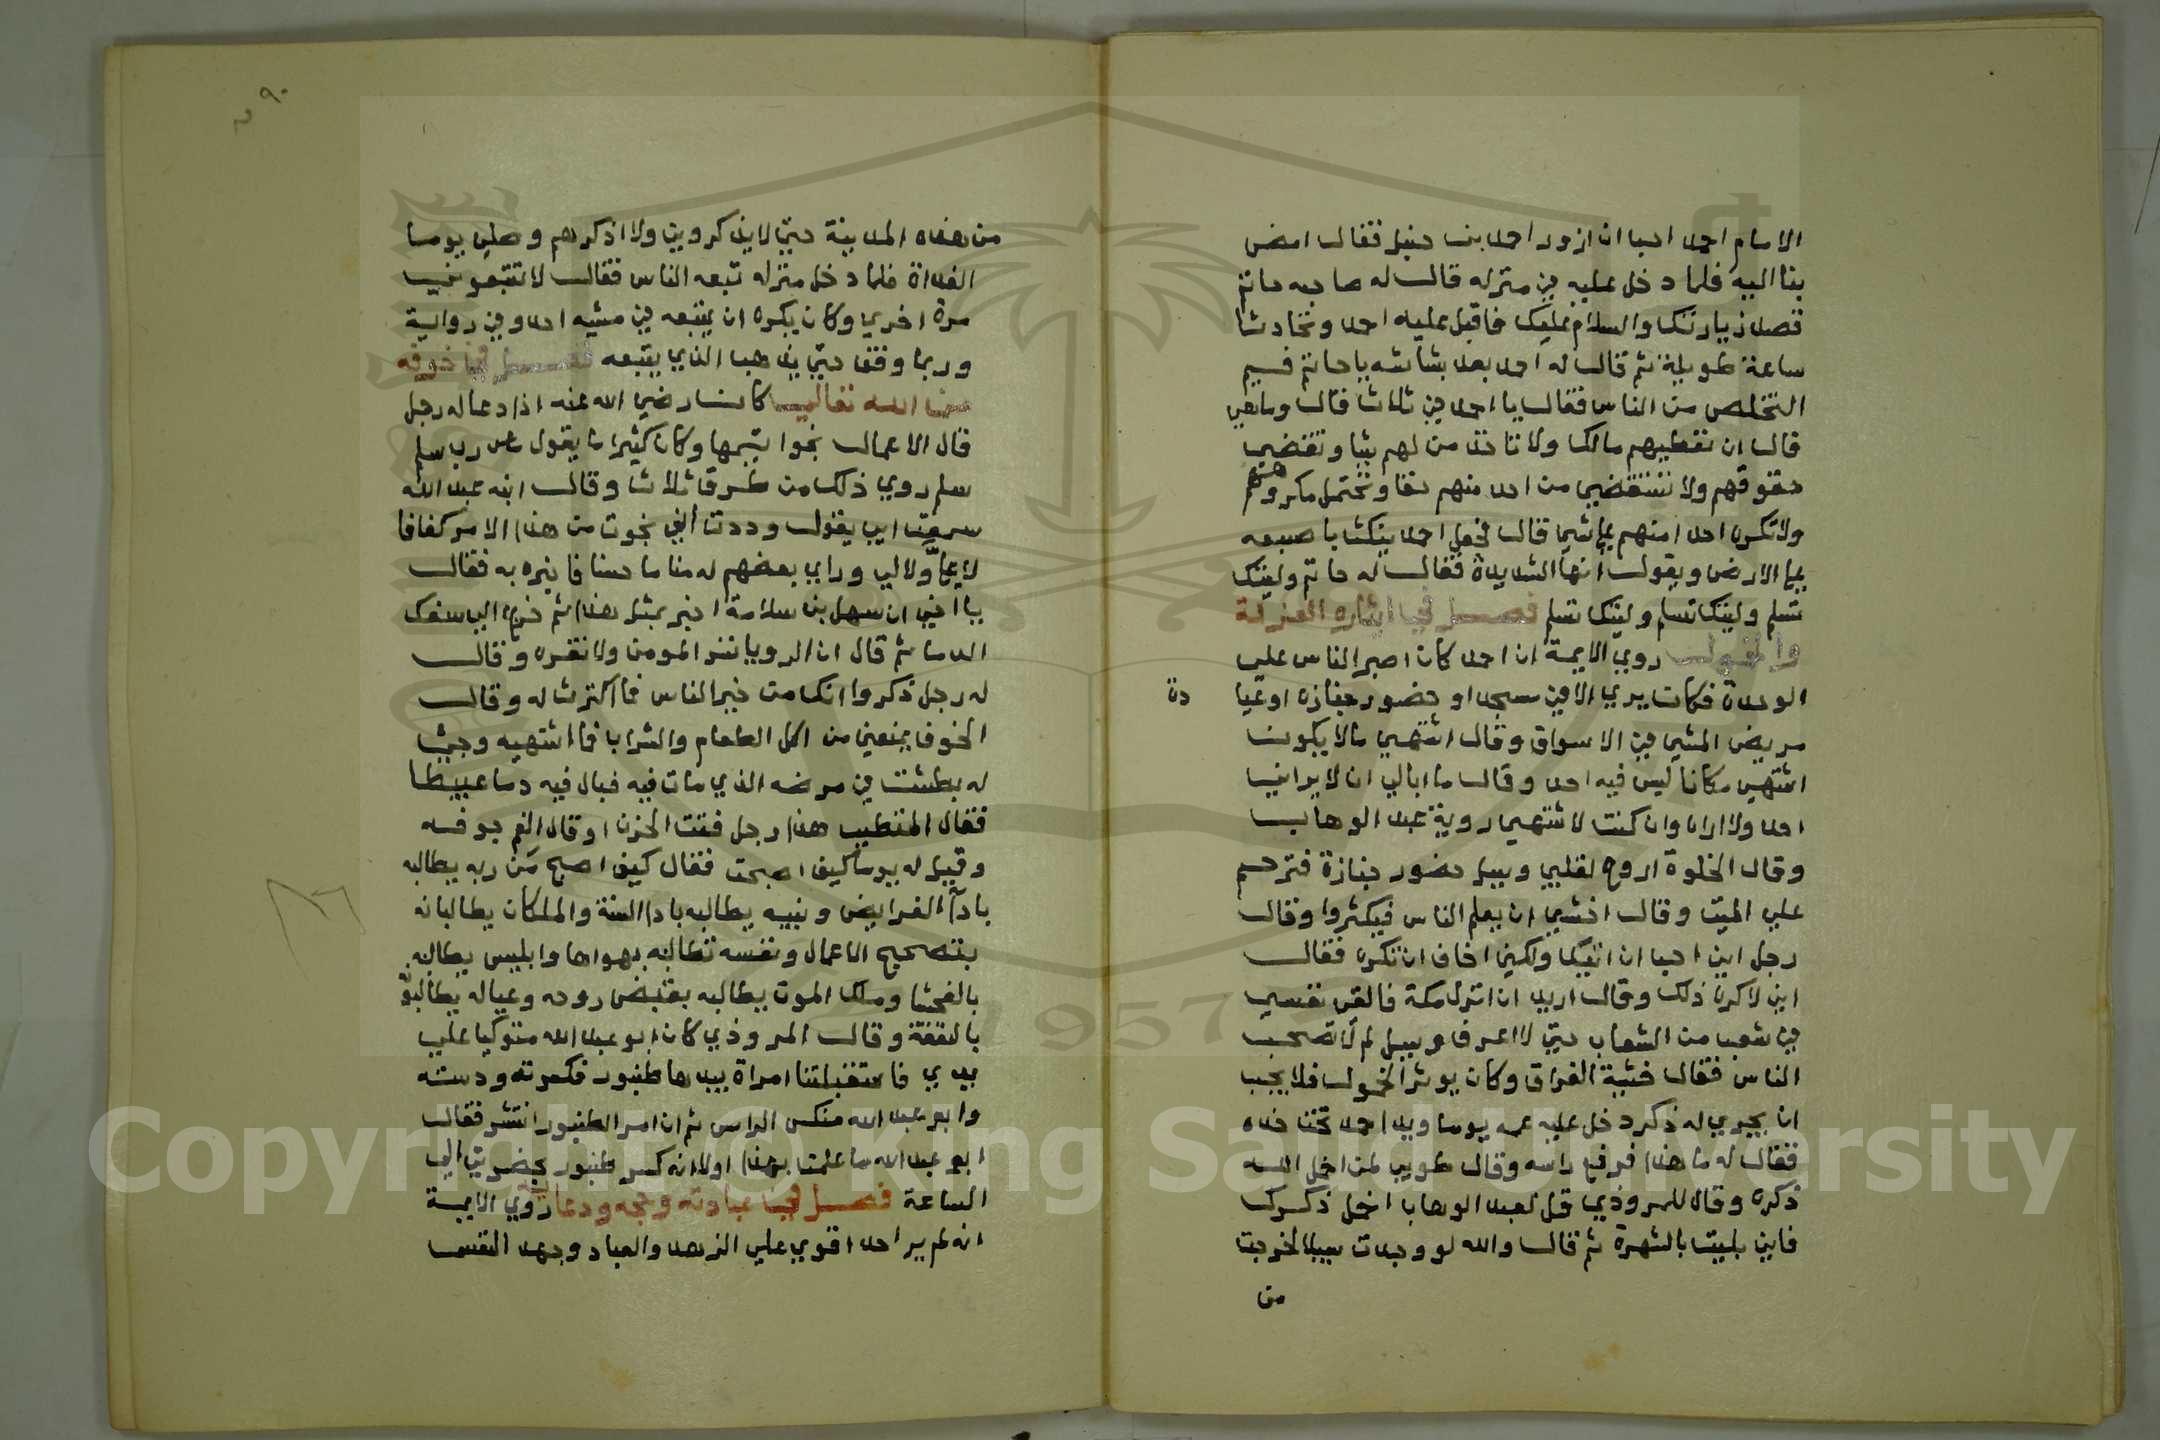 الامام احمد احب ان ازور احمد بن حنبل فقال امض
بنا اليه فلما دخل عليه في منزله قال له صاحبه حاتم
قصد زيارتك والسلام عليك فاقبل عليه احمد وتحادثا
ساعة طويلة ثم قال له احمد بعد بشاشته يا حاتم فيم
التخلص من الناس فقال يا احمد في ثلاث قال وما هي
قال ان تعطيهم مالك ولا تاخذ من لهم شيا وتقضي
حقوقهم ولا تستقضي من احد منهم حقا وتحتمل مكروههم
ولا تكره احدا منهم علي شي قال فجعل احمد ينكت باصبعه
علي الارض ويقول انها الشديدة فقال له حاتم وليتك
تسلم وليتك تسلم وليتك تسلم فصل في ايثاره العزلة
والخمول روي الايمة ان احمد كان اصبر الناس علي
الوحدة فكان يري الا في مسجد او حضور جنازه او عيا
دة
مريض المشي في الاسواق وقال اشتهي ما لا يكون
اشتهي مكانا ليس فيه احد وقال ما ابالي ان لا يراني
احد ولا اراه وان كنت لاشتهي روية عبد الوهاب
وقال الخلوة اروح لقلبي وسيل حضور جنازة فترحم
علي الميت وقال اخشي ان يعلم الناس فيكثروا وقال
رجل اني احب ان اتيك ولكني اخاف ان تكره فقال
اني لاكره ذلك وقال اريد ان انزل مكة فالقي نفسي
في شعب من الشعاب حتي لا اعرف وسيل لم لا تصحب
الناس فقال خشية الفراق وكان يوثر الخمول فلا يحب
ان يجري له ذكر دخل عليه عمه يوما ويد احمد تحت خده
فقال له ما هذا فرفع راسه وقال طوبي لمن اخمل الله
ذكره وقال للمروذي قل لعبد الوهاب اخمل ذكرك
فاني بليت بالشهرة ثم قال والله لو وجدت سبيلا لخرجت
من
٩٠
من هذه المدينة حتي لا يذكروني ولا اذكرهم وصلي يوما
الغداة فلما دخل منزله تبعه الناس فقال لا تتبعوني
مرة اخري وكان يكره ان يتبعه في مشيه احد وفي رواية
وربما وقف حتي يذهب الذي يتبعه فصل في خوفه
من الله تعالي كان رضي الله عنه اذا دعا له رجل
قال الاعمال بخواتيمها وكان كثيرا ما يقول رب سلم
سلم روي ذلك من طرق ثلاث وقال ابنه عبد الله
سمعت ابي يقول وددت اني نجوت من هذا الامر كفافا
لا علي ولا لي وراي بعضهم له مناما حسنا فاخبره به فقال
يا اخي ان سهل بن سلامة اخبر بمثل هذا ثم خرج الي سفك
الدما ثم قال ان الرويا تسر المومن ولا تغره وقال
له رجل ذكروا انك من خير الناس فما اكترث له وقال
الخوف يمنعني من اكل الطعام والشراب فما اشتهيه وجيئ
له بطشت في مرضه الذي مات فيه فبال فيه دما عبيطا
فقال المتطبب هذا رجل فتت الحزن او قال الغم جوفه
وقيل له يوما كيف اصبحت فقال كيف اصبح من ربه يطالبه
بادآ الفرايض ونبيه يطالبه بادا السنة والملكان يطالبانه
بتصحيح الاعمال ونفسه تطالبه بهواها وابليس يطالبه
بالفحشا وملك الموت يطالبه بقبض روحه وعياله يطالبونه
بالنفقة وقال المروذي كان ابو عبد الله متوكيا علي
يدي فاستقبلتنا امراة بيدها طنبور فكسرته ودسته
وابو عبد الله منكس الراس ثم ان امر الطنبور انتشر فقال
ابو عبد الله ما علمت بهذا ولا انه كسر طنبور بحضرتي الي
الساعة فصل في عبادته وحجه ودعائه روي الايمة
انه لم ير احد اقوي علي الزهد والعباد وجهد النفس
Copyright © King Saud University
1957